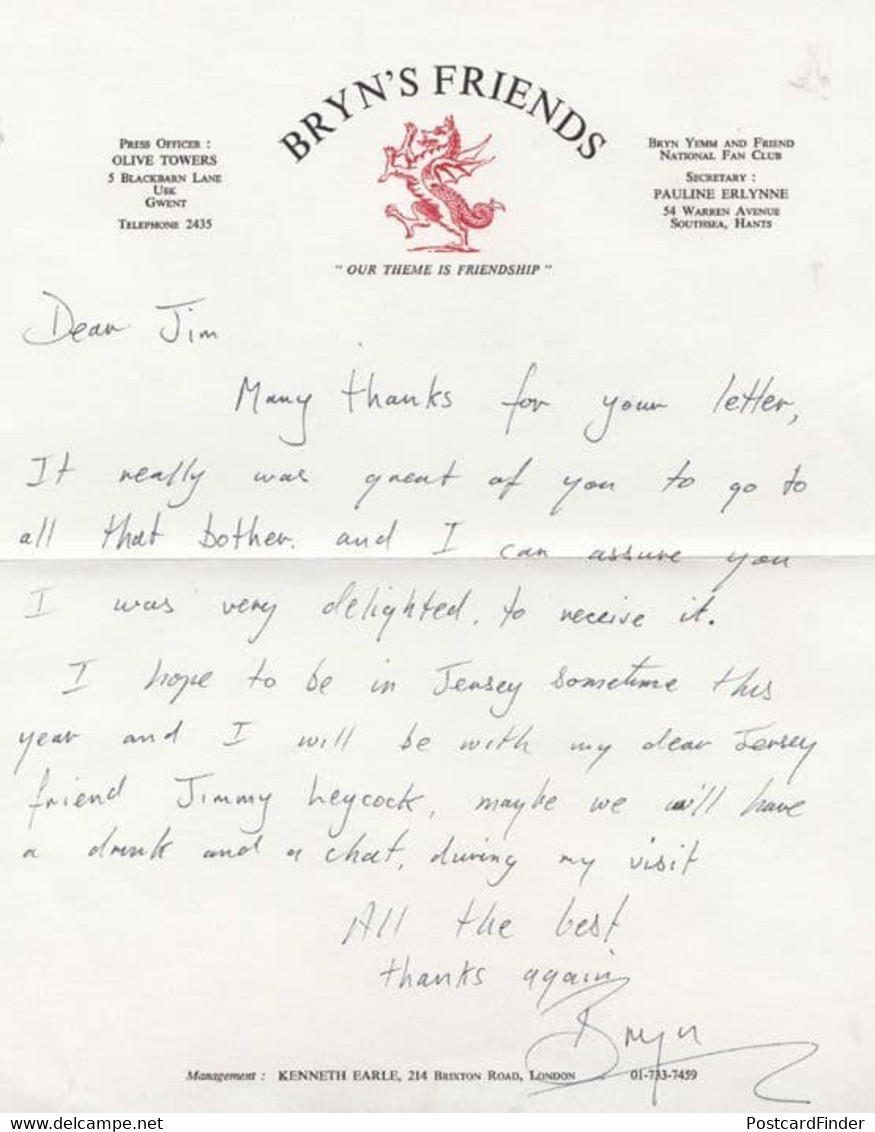 BRYN'S FRIENDS
PRESS OFFICER :
OLIVE TOWERS
5 BLACKBARN LANE
USK
GWENT
TELEPHONE 2435
BRYN YEMM AND FRIEND
NATIONAL FAN CLUB
SECRETARY :
PAULINE ERLYNNE
54 WARREN AVENUE
SOUTHSEA, HANTS
" OUR THEME IS FRIENDSHIP "
Dear Jim
Many thanks for your letter,
It really was great of you to go to
all that bother. and I can assure you
I was very delighted. to receive it.
I hope to be in Jersey sometime this
year and I will be with my dear Jersey
friend Jimmy Leycock, maybe we will have
a drink and a chat, during my visit
All the best
thanks again
Bryn
Management : KENNETH EARLE, 214 BRIXTON ROAD, LONDON 01-733-7459
PostcardFinder